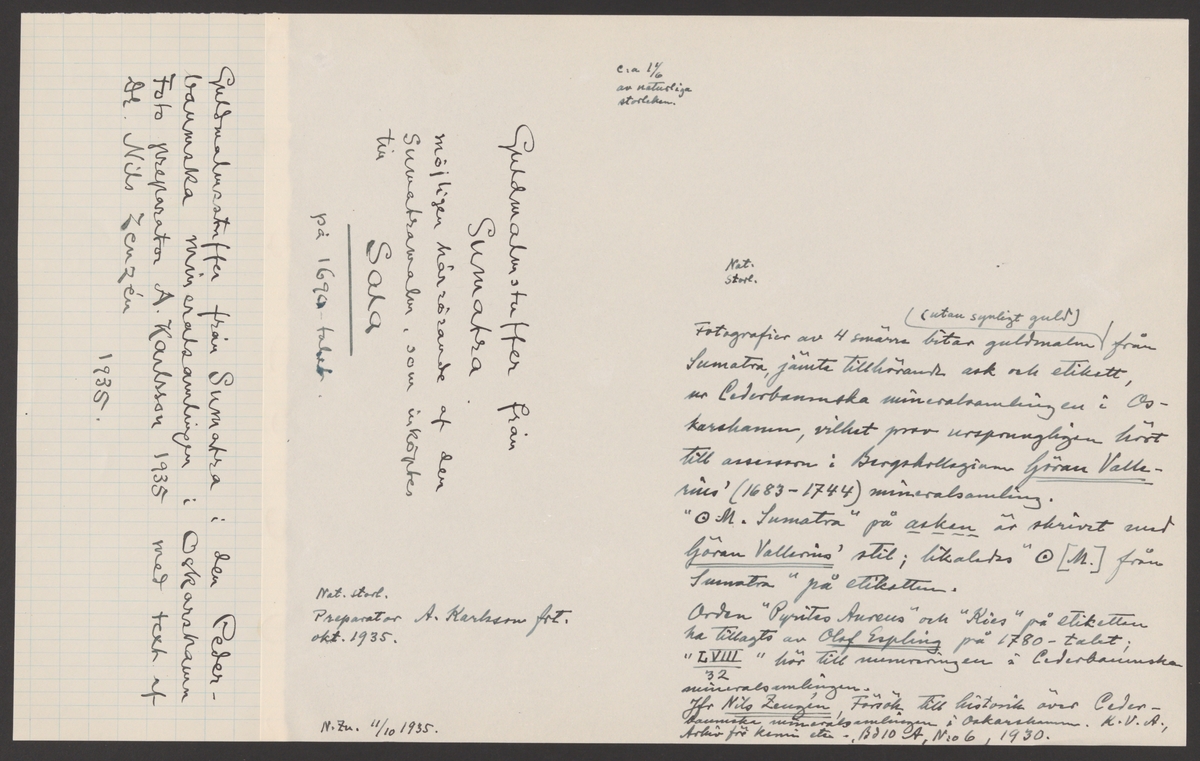 Guldmalmsstuffer från Sumatra i den Ceder-
baumska mineralsamlingen i Oskarshamn
Foto preparator A. Karlsson 1935 med text af
Dr. Nils Zenzén
1935.
c:a 1/6
av naturliga
storleken.
Guldmalmstuffer från
Sumatra.
möjligen härrörande af den
Sumatramalm, som inköptes
till Sala
på 1690-talet.
Nat. storl.
Preparator A. Karlsson fot.
okt. 1935.
N. Zn. 11/10 1935.
Nat.
storl.
(utan synligt guld)
Fotografier av 4 smärre bitar guldmalm från
Sumatra, jämte tillhörande ask och etikett,
ur Cederbaumska mineralsamlingen i Os-
karshamn, vilket prov ursprungligen hört
till assessorn i Bergskollegium Göran Valle-
rius' (1683-1744) mineralsamling.
"☉ M. Sumatra" på asken är skrivet med
Göran Vallerius' stil; likaledes "☉ [M.] från
Sumatra" på etiketten.
Orden "Pyrites Aureus" och "Kies" på etiketten
ha tillagts av Olof Espling på 1780-talet;
"LVIII/32" hör till numreringen i Cederbaumska
mineralsamlingen.
Jfr Nils Zenzén, Försök till historik över Ceder-
baumska mineralsamlingen i Oskarshamn. K.V.A.,
Arkiv för kemi etc., Bd 10 A, N:o 6, 1930.